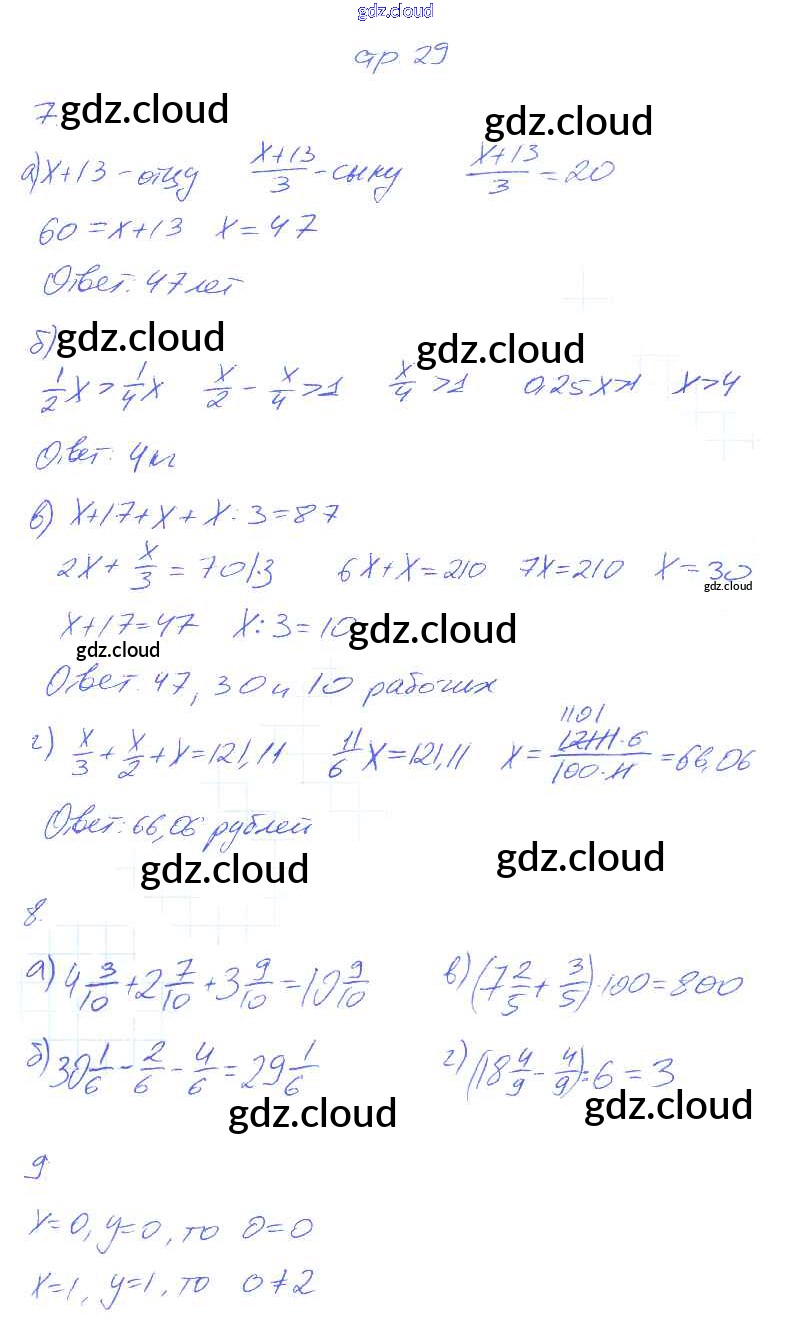 gdz.cloud
стр 29
7 gdz.cloud gdz.cloud
а) x+13 - отцу (x+13)/3 - сыну (x+13)/3 = 20
60 = x+13 x = 47
Ответ: 47 лет
б) gdz.cloud gdz.cloud
1/2 x > 1/4 x x/2 - x/4 > 1 x/4 > 1 0,25x>1 x>4
Ответ: 4 м
в) x+17+x+x:3=87
2x + x/3 = 70|·3 6x+x=210 7x=210 x=30
gdz.cloud
x+17=47 x:3=10 gdz.cloud
gdz.cloud
Ответ: 47, 30 и 10 рабочих
г) x/3 + x/2 + x = 121,11 11/6 x = 121,11 x = (12111·6)/(100·11) = 66,06
1101
Ответ: 66,06 рублей
gdz.cloud gdz.cloud
8.
а) 4 3/10 + 2 7/10 + 3 9/10 = 10 9/10 в) (7 2/5 + 3/5)·100 = 800
б) 30 1/6 - 2/6 - 4/6 = 29 1/6 г) (18 4/9 - 4/9):6 = 3
gdz.cloud gdz.cloud
9
x=0, y=0, то 0=0
x=1, y=1, то 0≠2